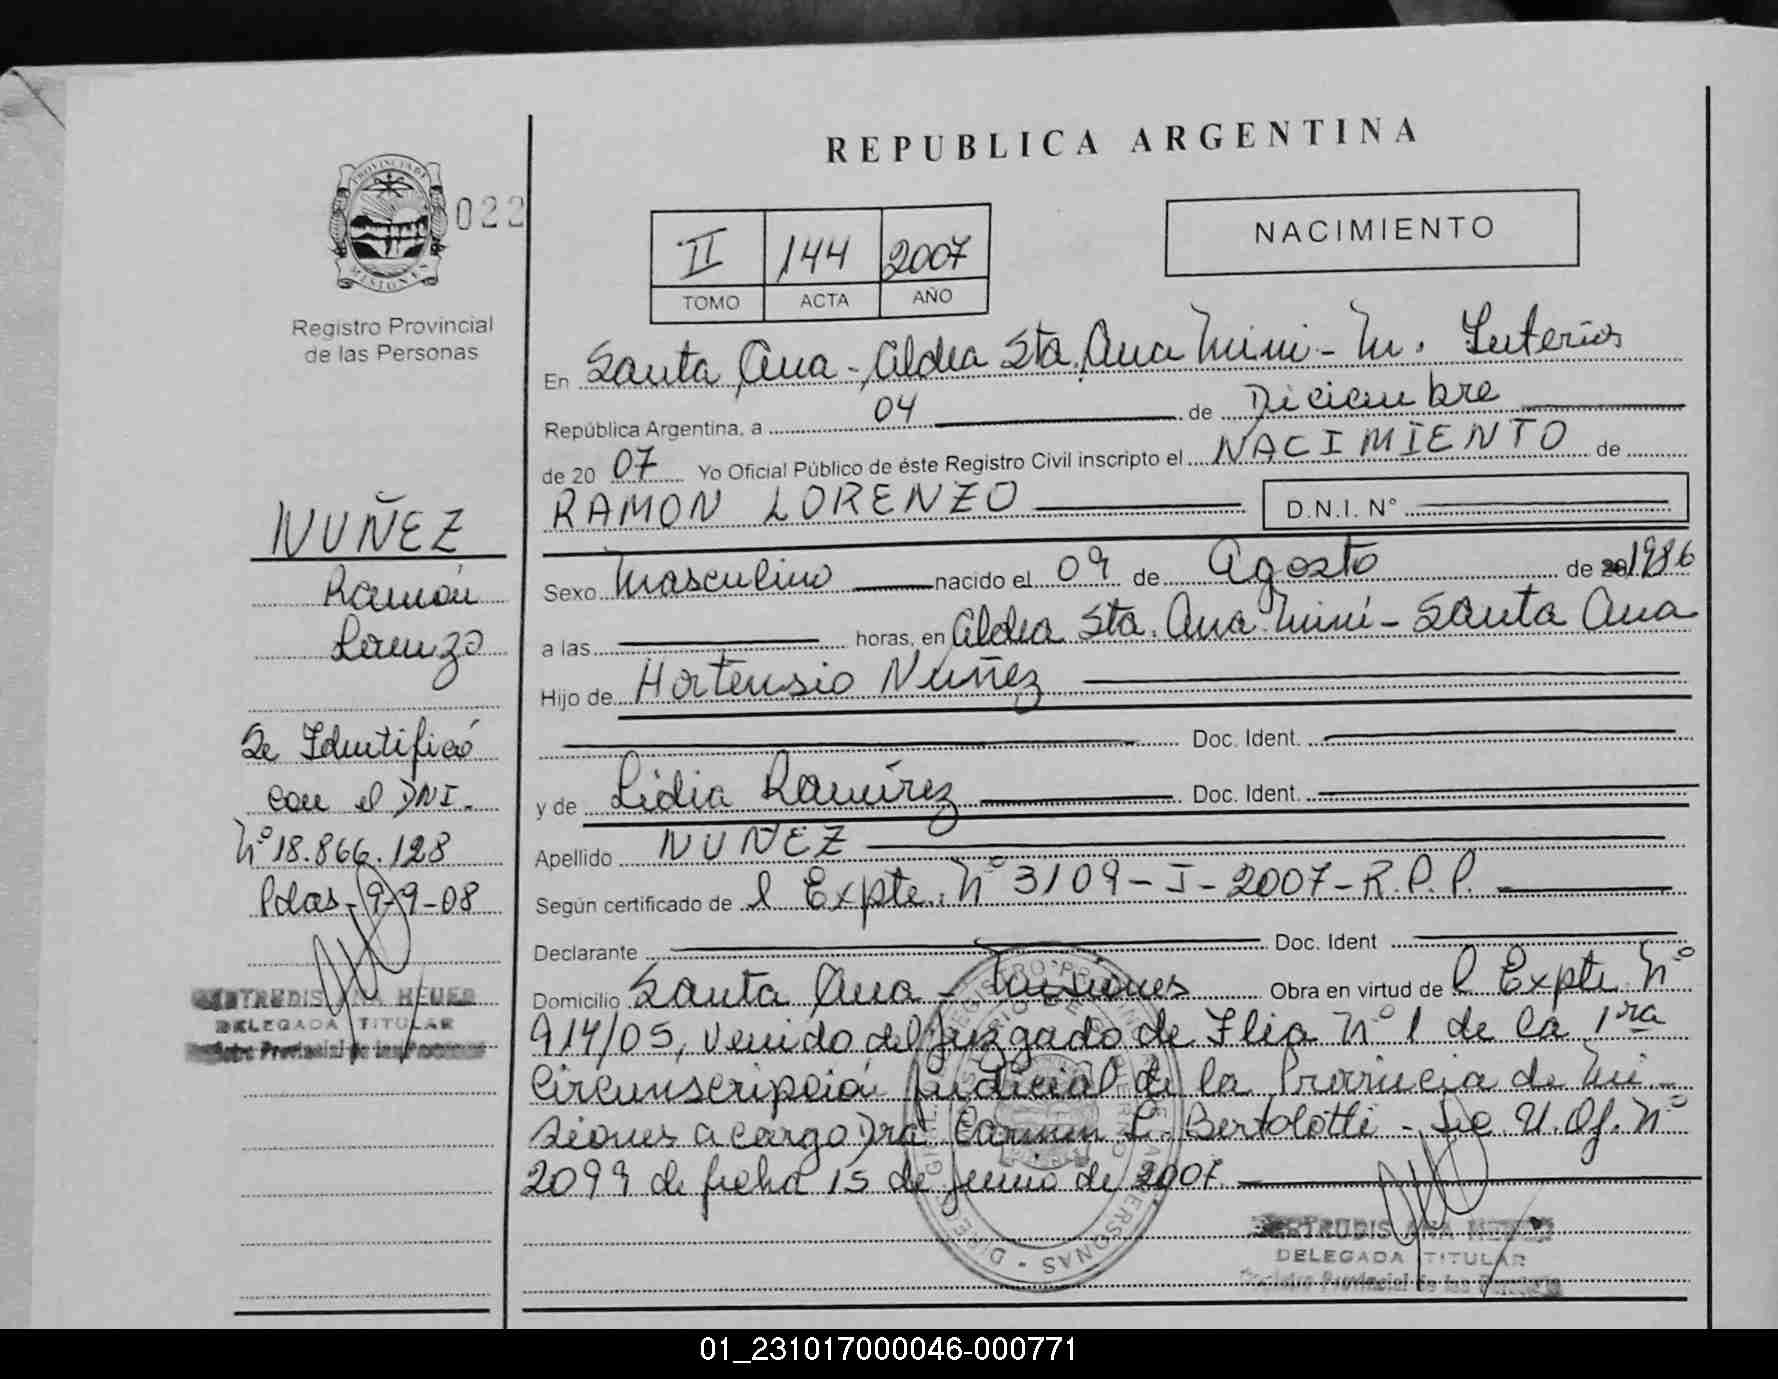 REPUBLICA ARGENTINA
PROVINCIA DE
MISIONES
022
Registro Provincial
de las Personas
II 144 2007
TOMO ACTA AÑO
NACIMIENTO
En Santa Ana - Aldea Sta. Ana Miní - M.
República Argentina, a 04 de Diciembre
de 20 07 Yo Oficial Público de éste Registro Civil inscripto el NACIMIENTO de
RAMON LORENZO D.N.I. N°
Sexo Masculino nacido el 09 de Agosto de 1986
a las horas, en Aldea Sta. Ana Miní - Santa Ana
Hijo de Hortensio Nuñez
Doc. Ident.
y de Lidia Ramírez Doc. Ident.
Apellido NUÑEZ
Según certificado de l Expte. N° 3109-I-2007-R.P.P.
Declarante Doc. Ident
Domicilio Santa Ana - Misiones Obra en virtud de l Expte N°
914/05, venido del Juzgado de Flia N° 1 de la 1ra
Circunscripción Judicial de la Provincia de Mi-
siones a cargo Dra Carmen L. Bertolotti - U. Of. N°
2099 de fecha 15 de Junio de 2007.
GERTRUDIS ANA HEUER
DELEGADA TITULAR
Registro Provincial de las Personas
NUÑEZ
Ramón
Lorenzo
Se Identificó
con el DNI.
N° 18.866.128
Pdas - 9-9-08
GERTRUDIS ANA HEUER
DELEGADA TITULAR
Registro Provincial de las Personas
01_231017000046-000771